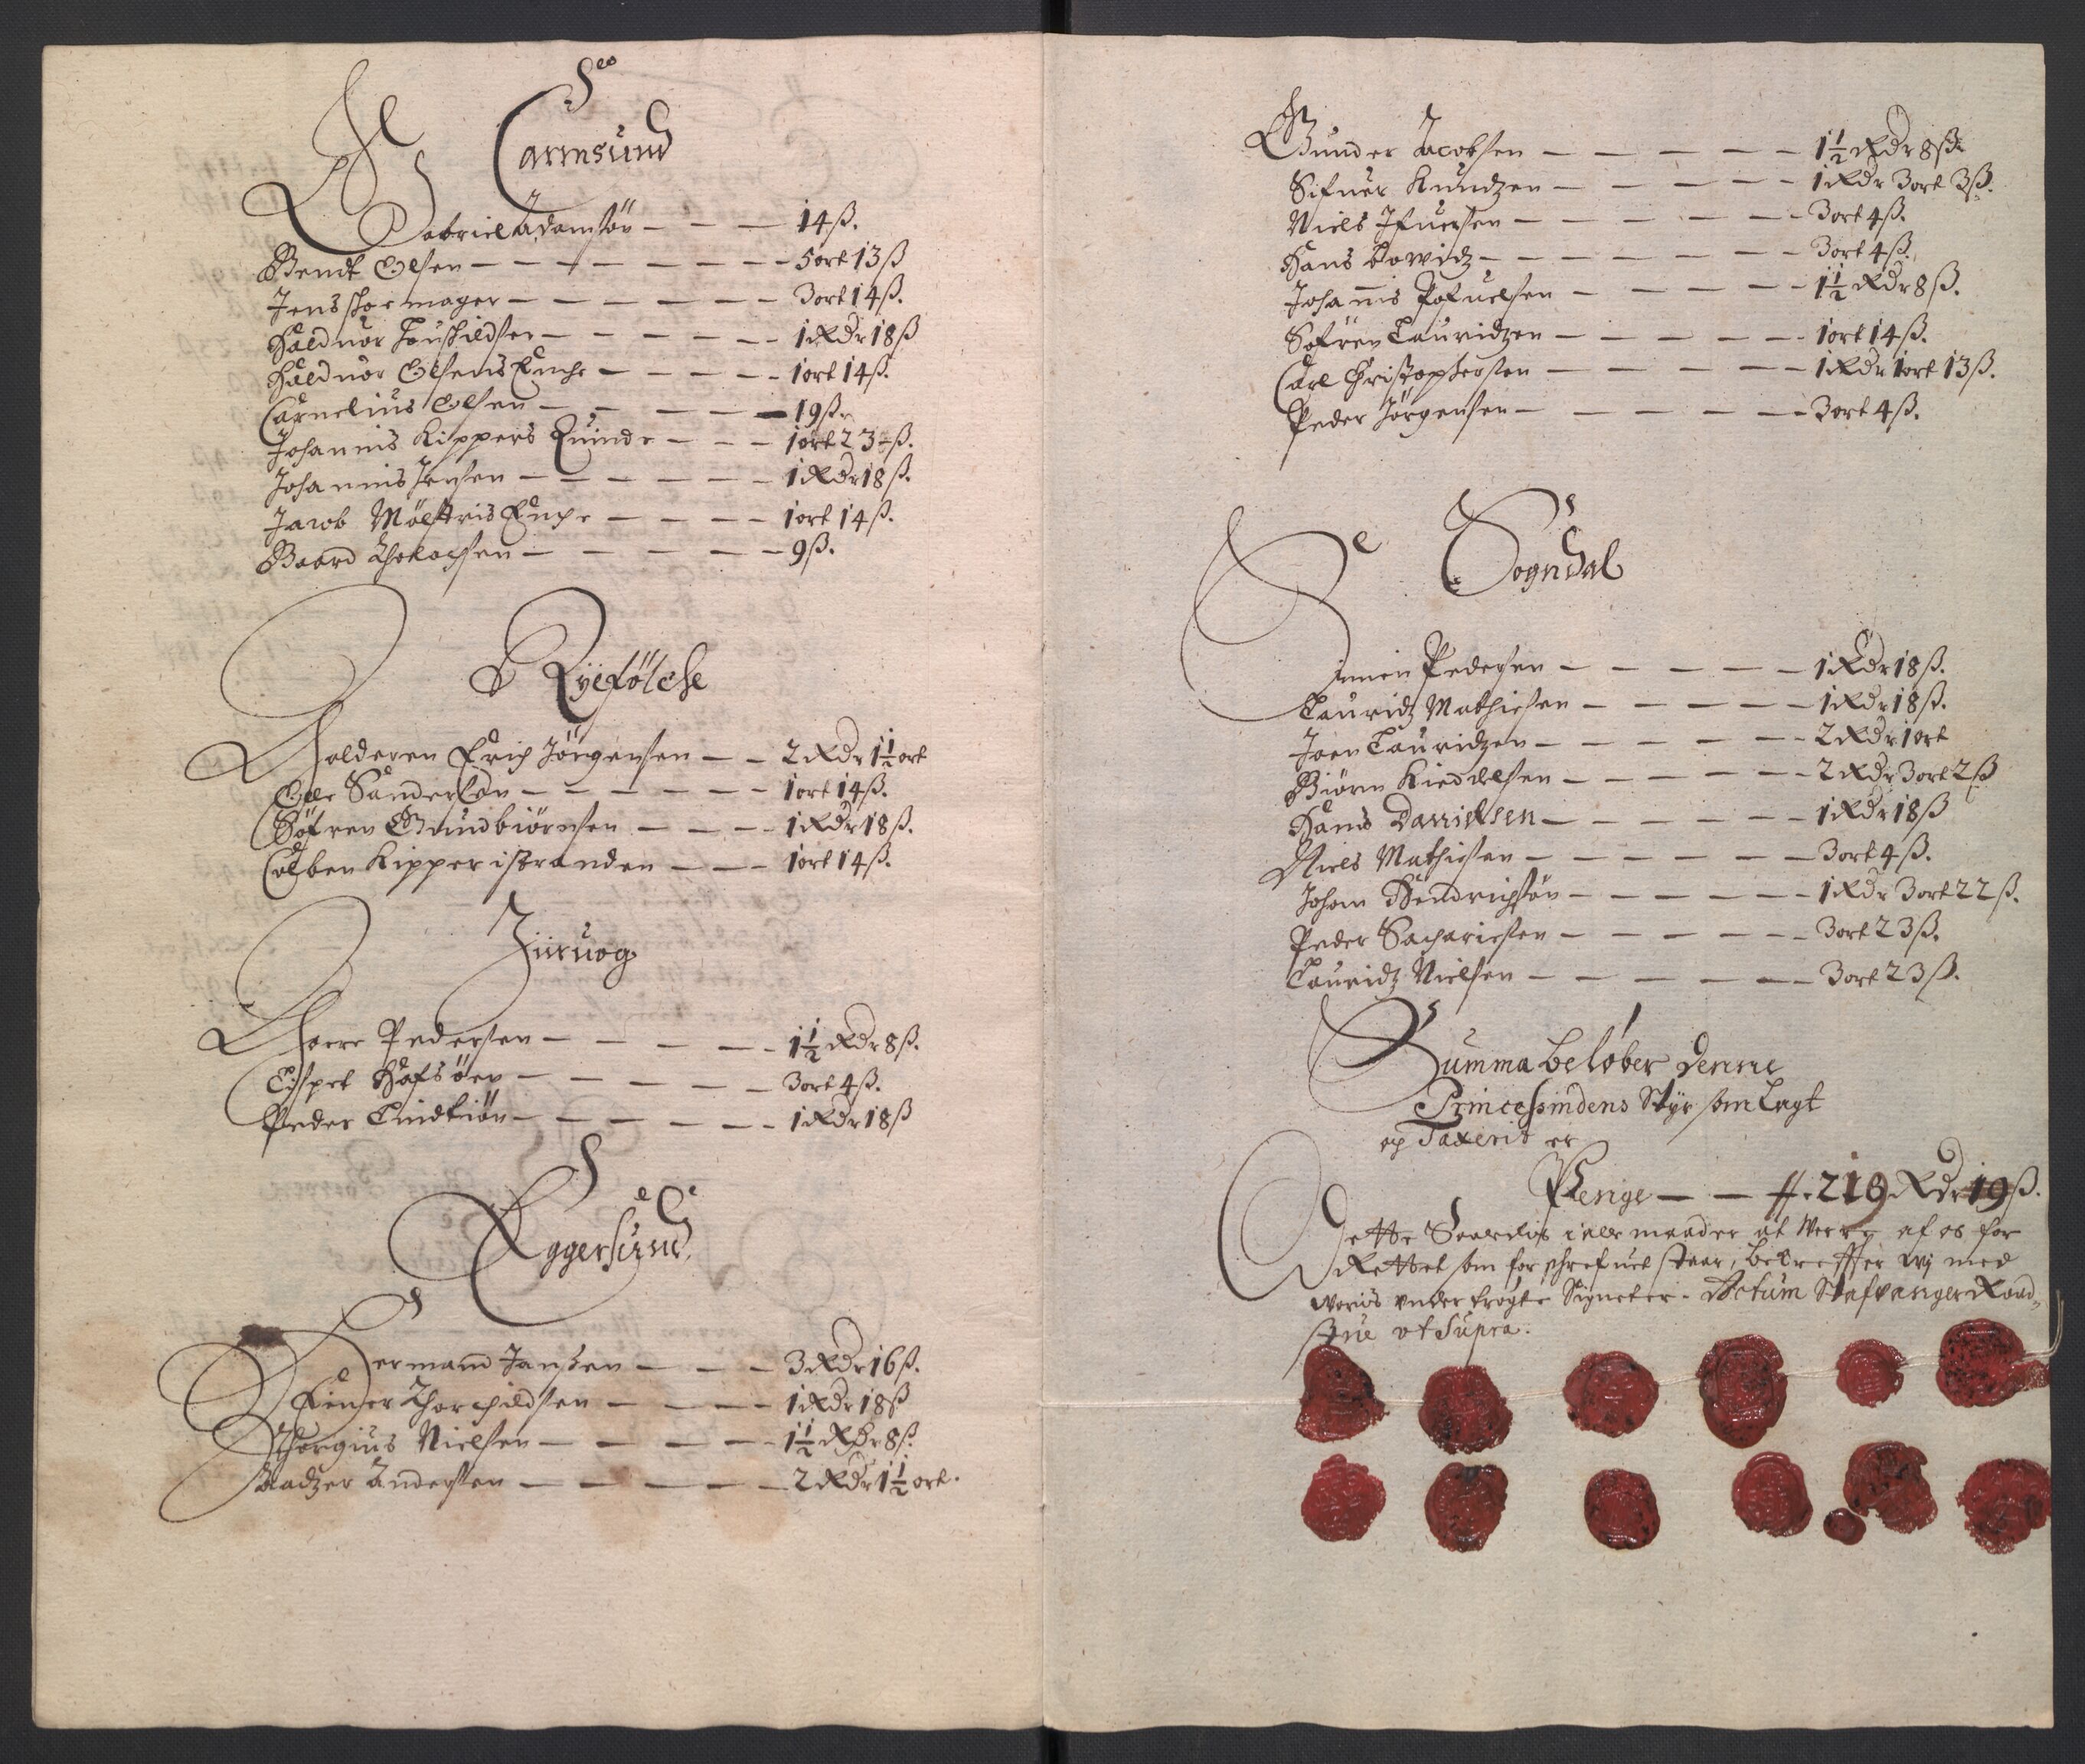 Carmsund
Gabriel Adamsøn — — — 14 ß.
Bendt Olsen — — — — — — — 5 ort 13 ß
Jens skoemager — — — — — — 3 ort 14 ß.
Halduor — — — — — 1 Rdr 18 ß
Halduor Olsens Enche — — — — 1 ort 14 ß.
Carnelius Olsen — — — — 19 ß.
Johannis Kippers Quinde — — — 1 ort 23 ß.
Johannis Jensen — — — — — — 1 Rdr 18 ß.
Jacob Enche — — — — 1 ort 14 ß.
Baard — — — — — 9 ß.
Ryefölche
Holderen Erich Jörgensen — — 2 Rdr 1½ ort
Olle Sandersøn — — — — — — 1 ort 14 ß.
Söfren Gundbiörnsen — — — — 1 Rdr 18 ß.
Colben Kipper i stranden — — — 1 ort 14 ß.
Jiiruog
Thorre Pedersen — — — — — 1½ Rdr 8 ß.
Hafsöen — — — — — — 3 ort 4 ß.
Peder — — — — — — 1 Rdr 18 ß
Eggersund
Hermand Janssen — — — 3 Rdr 16 ß.
Einer Thorchildsen — — — — 1 Rdr 18 ß
Thorgius Nielsen — — — — — 1½ Rdr 8 ß.
Madzer Andersen — — — — — — 2 Rdr 1½ ort.
Gunder Jacobsen — — — — — — 1½ Rdr 8 ß
Sifuer Knudzen — — — — — — 1 Rdr 3 ort 3 ß.
Niels Ifuersen — — — — — — — 3 ort 4 ß.
Hans — — — — — — — — 3 ort 4 ß.
Johannis Pofuelsen — — — — — 1½ Rdr 8 ß.
Sofren Lauridzen — — — — — — 1 ort 14 ß.
Carl Christophersen — — — — — 1 Rdr 1 ort 13 ß.
Peder Jörgensen — — — — — — 3 ort 4 ß.
Sogndal
Pedersen — — — — — 1 Rdr 18 ß.
Lauridz Mathiesen — — — — — 1 Rdr 18 ß.
Joen Lauridzen — — — — — — 2 Rdr 1 ort
Biörn Kieddelsen — — — — — — 2 Rdr 3 ort 2 ß
Hans Danielsen — — — — — — 1 Rdr 18 ß
Niels Mathiesen — — — — — — — 3 ort 4 ß.
Johan Hendrichsön — — — — — — 1 Rdr 3 ort 22 ß.
Peder Sachariesen — — — — — — 3 ort 23 ß.
Lauridz Nielsen — — — — — — 3 ort 23 ß.
Summa beløber denne
Princessindens Styr som Lagt
og Taxerit er
Penge — — 219 Rdr 19 ß.
Dette Saaledis i alle maader at werre af os for
Rettet som for schrefuet staar, bekreffter wj med
woris vnder trögte Signeter. Actum Stafvanger Raad-
stue vt Supra.